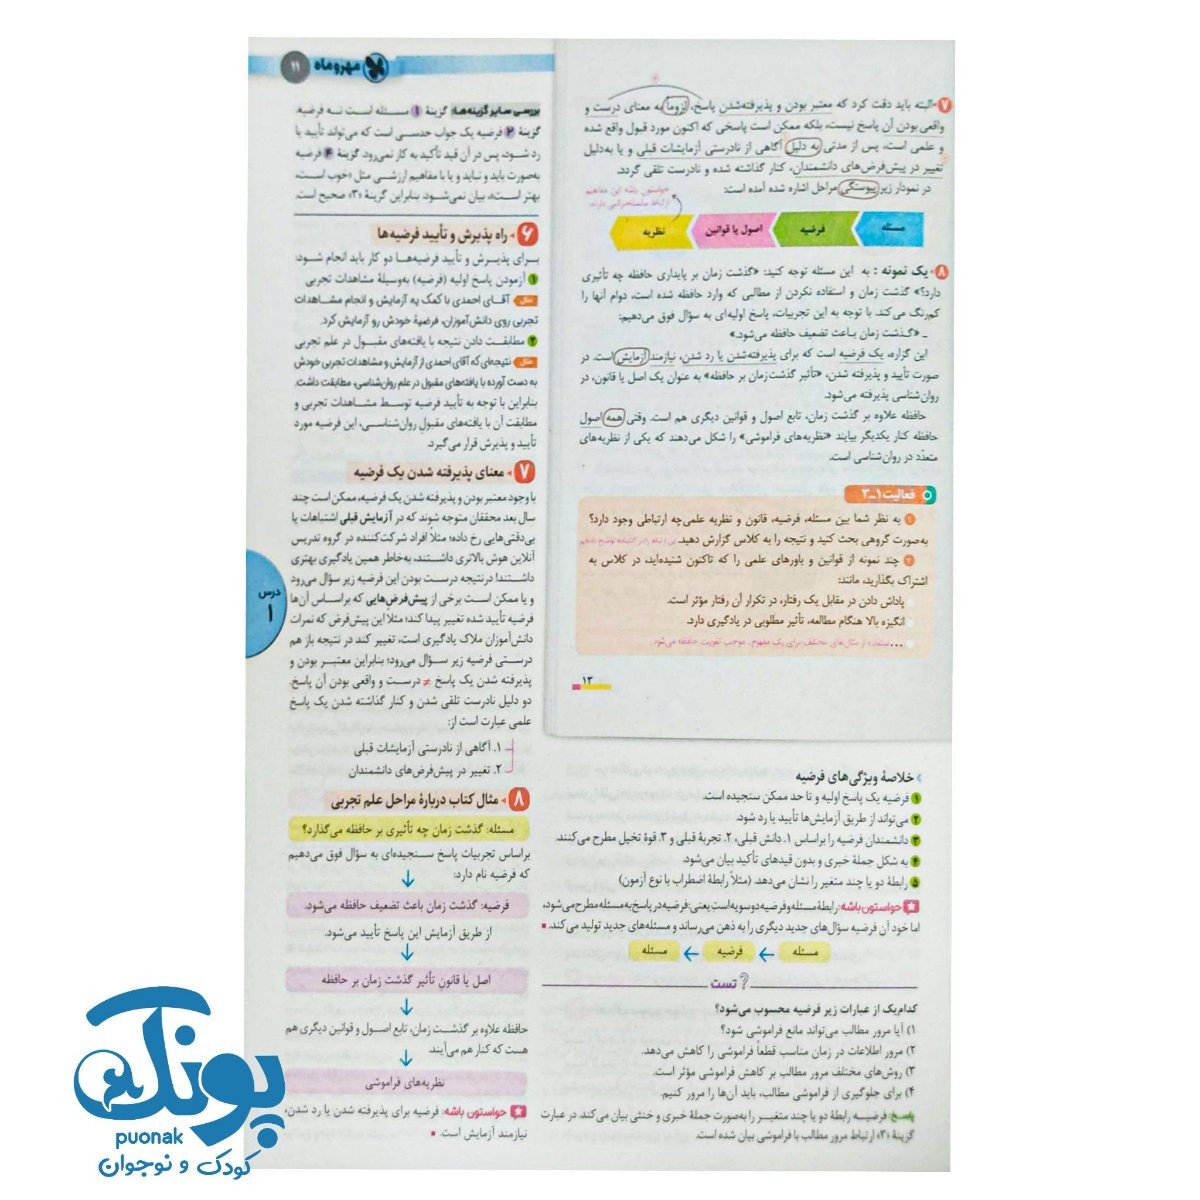 مهروماه
۱۱
۷ البته باید دقت کرد که معتبر بودن و پذیرفته‌شدن پاسخ، لزوماً به معنای درست و
واقعی بودن آن پاسخ نیست، بلکه ممکن است پاسخی که اکنون مورد قبول واقع شده
و علمی است، پس از مدتی به دلیل آگاهی از نادرستی آزمایشات قبلی و یا به‌دلیل
تغییر در پیش‌فرض‌های دانشمندان، کنار گذاشته شده و نادرست تلقی گردد.
در نمودار زیر پیوستگی مراحل اشاره شده آمده است:
حواستون باشه این مفاهیم
ارتباط سلسله‌مراتبی دارند
مسئله
فرضیه
اصول یا قوانین
نظریه
۸ یک نمونه: به این مسئله توجه کنید: «گذشت زمان بر پایداری حافظه چه تأثیری
دارد؟» گذشت زمان و استفاده نکردن از مطالبی که وارد حافظه شده است، دوام آنها را
کم‌رنگ می‌کند. با توجه به این تجربیات، پاسخ اولیه‌ای به سؤال فوق می‌دهیم:
ـ «گذشت زمان باعث تضعیف حافظه می‌شود.»
این گزاره، یک فرضیه است که برای پذیرفته‌شدن یا رد شدن، نیازمند آزمایش است. در
صورت تأیید و پذیرفته شدن، «تأثیر گذشت زمان بر حافظه» به عنوان یک اصل یا قانون، در
روان‌شناسی پذیرفته می‌شود.
حافظه علاوه بر گذشت زمان، تابع اصول و قوانین دیگری هم است. وقتی همه اصول
حافظه کنار یکدیگر بیایند «نظریه‌های فراموشی» را شکل می‌دهند که یکی از نظریه‌های
متعدّد در روان‌شناسی است.
فعالیت ۱ـ۳
۱ به نظر شما بین مسئله، فرضیه، قانون و نظریه علمی چه ارتباطی وجود دارد؟
به‌صورت گروهی بحث کنید و نتیجه را به کلاس گزارش دهید.
۲ چند نمونه از قوانین و باورهای علمی را که تاکنون شنیده‌اید، در کلاس به
اشتراک بگذارید، مانند:
پاداش دادن در مقابل یک رفتار، در تکرار آن رفتار مؤثر است.
انگیزه بالا هنگام مطالعه، تأثیر مطلوبی در یادگیری دارد.
... استفاده از مثال‌های مختلف برای یک مفهوم، موجب تقویت حافظه می‌شود.
۱۳
خلاصهٔ ویژگی‌های فرضیه
۱ فرضیه یک پاسخ اولیه و تا حد ممکن سنجیده است.
۲ می‌تواند از طریق آزمایش‌ها تأیید یا رد شود.
۳ دانشمندان فرضیه را براساس ۱. دانش قبلی، ۲. تجربهٔ قبلی و ۳. قوهٔ تخیل مطرح می‌کنند.
۴ به شکل جملهٔ خبری و بدون قیدهای تأکید بیان می‌شود.
۵ رابطهٔ دو یا چند متغیر را نشان می‌دهد. (مثلاً رابطهٔ اضطراب با نوع آزمون)
حواستون باشه: رابطهٔ مسئله و فرضیه دوسویه است یعنی: فرضیه در پاسخ به مسئله مطرح می‌شود،
اما خود آن فرضیه سؤال‌های جدید دیگری را به ذهن می‌رساند و مسئله‌های جدید تولید می‌کند.
مسئله ← فرضیه ← مسئله
تست
کدام‌یک از عبارات زیر فرضیه محسوب می‌شود؟
۱) آیا مرور مطالب می‌تواند مانع فراموشی شود؟
۲) مرور اطلاعات در زمان مناسب قطعاً فراموشی را کاهش می‌دهد.
۳) روش‌های مختلف مرور مطالب بر کاهش فراموشی مؤثر است.
۴) برای جلوگیری از فراموشی مطالب، باید آن‌ها را مرور کنیم.
پاسخ: فرضیه رابطهٔ دو یا چند متغیر را به‌صورت جملهٔ خبری و خنثی بیان می‌کند. در عبارت
گزینهٔ «۳» ارتباط مرور مطالب با فراموشی بیان شده است.
بررسی سایر گزینه‌ها: گزینهٔ ۱ مسئله است نه فرضیه.
گزینهٔ ۲ فرضیه یک جواب حدسی است که می‌تواند تأیید یا
رد شود، پس در آن قید تأکید به کار نمی‌رود. گزینهٔ ۴ فرضیه
به‌صورت باید و نباید و یا با مفاهیم ارزشی مثل «خوب است،
بهتر است»، بیان نمی‌شود. بنابراین گزینهٔ «۳» صحیح است.
۶ راه پذیرش و تأیید فرضیه‌ها
برای پذیرش و تأیید فرضیه‌ها دو کار باید انجام شود:
۱ آزمودن پاسخ اولیه (فرضیه) به‌وسیلهٔ مشاهدات تجربی
مثال آقای احمدی با کمک یه آزمایش و انجام مشاهدات
تجربی روی دانش‌آموزان، فرضیهٔ خودش رو آزمایش کرد.
۲ مطابقت دادن نتیجه با یافته‌های مقبول در علم تجربی
مثال نتیجه‌ای که آقای احمدی از آزمایش و مشاهدات تجربی خودش
به دست آورده با یافته‌های مقبول در علم روان‌شناسی، مطابقت داشت.
بنابراین با توجه به تأیید فرضیه توسط مشاهدات تجربی و
مطابقت آن با یافته‌های مقبول روان‌شناسی، این فرضیه مورد
تأیید و پذیرش قرار می‌گیرد.
۷ معنای پذیرفته شدن یک فرضیه
با وجود معتبر بودن و پذیرفته شدن یک فرضیه، ممکن است چند
سال بعد محققان متوجه شوند که در آزمایش قبلی اشتباهات یا
بی‌دقتی‌هایی رخ داده؛ مثلاً افراد شرکت‌کننده در گروه تدریس
آنلاین هوش بالاتری داشتند، به‌خاطر همین یادگیری بهتری
داشتند! درنتیجه درست بودن این فرضیه زیر سؤال می‌رود
و یا ممکن است برخی از پیش‌فرض‌هایی که براساس آن‌ها
فرضیه تأیید شده تغییر پیدا کند؛ مثلاً این پیش‌فرض که نمرات
دانش‌آموزان ملاک یادگیری است، تغییر کند در نتیجه باز هم
درستی فرضیه زیر سؤال می‌رود؛ بنابراین معتبر بودن و
پذیرفته شدن یک پاسخ ≠ درست و واقعی بودن آن پاسخ.
دو دلیل نادرست تلقی شدن و کنار گذاشته شدن یک پاسخ
علمی عبارت است از:
۱. آگاهی از نادرستی آزمایشات قبلی
۲. تغییر در پیش‌فرض‌های دانشمندان
۸ مثال کتاب دربارهٔ مراحل علم تجربی
مسئله: گذشت زمان چه تأثیری بر حافظه می‌گذارد؟
براساس تجربیات پاسخ سنجیده‌ای به سؤال فوق می‌دهیم
که فرضیه نام دارد:
فرضیه: گذشت زمان باعث تضعیف حافظه می‌شود.
از طریق آزمایش این پاسخ تأیید می‌شود.
اصل یا قانون تأثیر گذشت زمان بر حافظه
حافظه علاوه بر گذشت زمان، تابع اصول و قوانین دیگری هم
هست که کنار هم می‌آیند.
نظریه‌های فراموشی
حواستون باشه: فرضیه برای پذیرفته شدن یا رد شدن،
نیازمند آزمایش است.
درس
۱
پونک
puonak
کودک و نوجوان